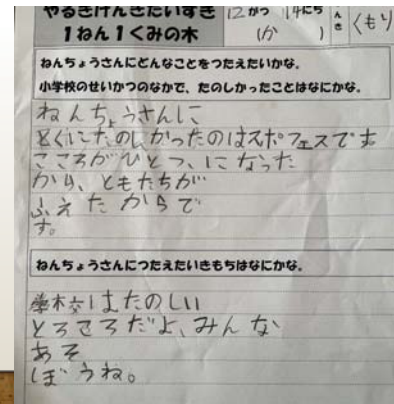 やるきげんきだいすき
1ねん1くみの木
12がつ 14にち
(か)
んき
くもり
ねんちょうさんにどんなことをつたえたいかな。
小学校のせいかつのなかで、たのしかったことはなにかな。
ねんちょうさんに
とくにたのしかったのはスポフェスです
こころがひとつ、になった
から、ともだちが
ふえたからで
す。
ねんちょうさんにつたえたいきもちはなにかな。
学木交はたのしい
ところだよ、みんな
あそ
ぼうね。